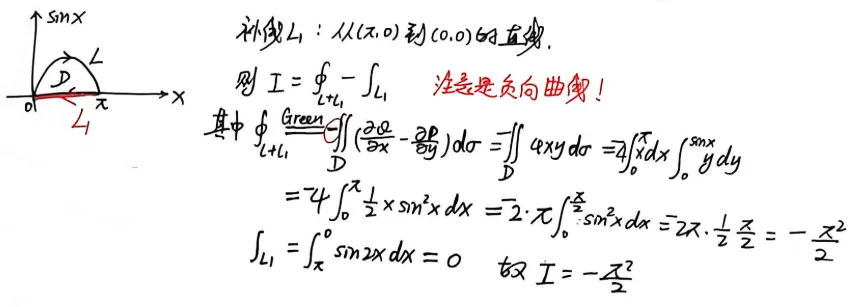 sinx
L
D
0 π x
L₁
补线L₁：从(π,0)到(0,0)的直线.
则 I = ∮_{L+L₁} - ∫_{L₁} 注意是负向曲线！
其中 ∮_{L+L₁} =Green= -∬_D (∂Q/∂x - ∂P/∂y)dσ = -∬_D 4xydσ = -4∫₀^π xdx ∫₀^{sinx} ydy
= -4∫₀^π ½ x sin²x dx = -2·π∫₀^{π/2} sin²x dx = -2π·½ π/2 = -π²/2
∫_{L₁} = ∫_π^0 sin2x dx = 0 故 I = -π²/2